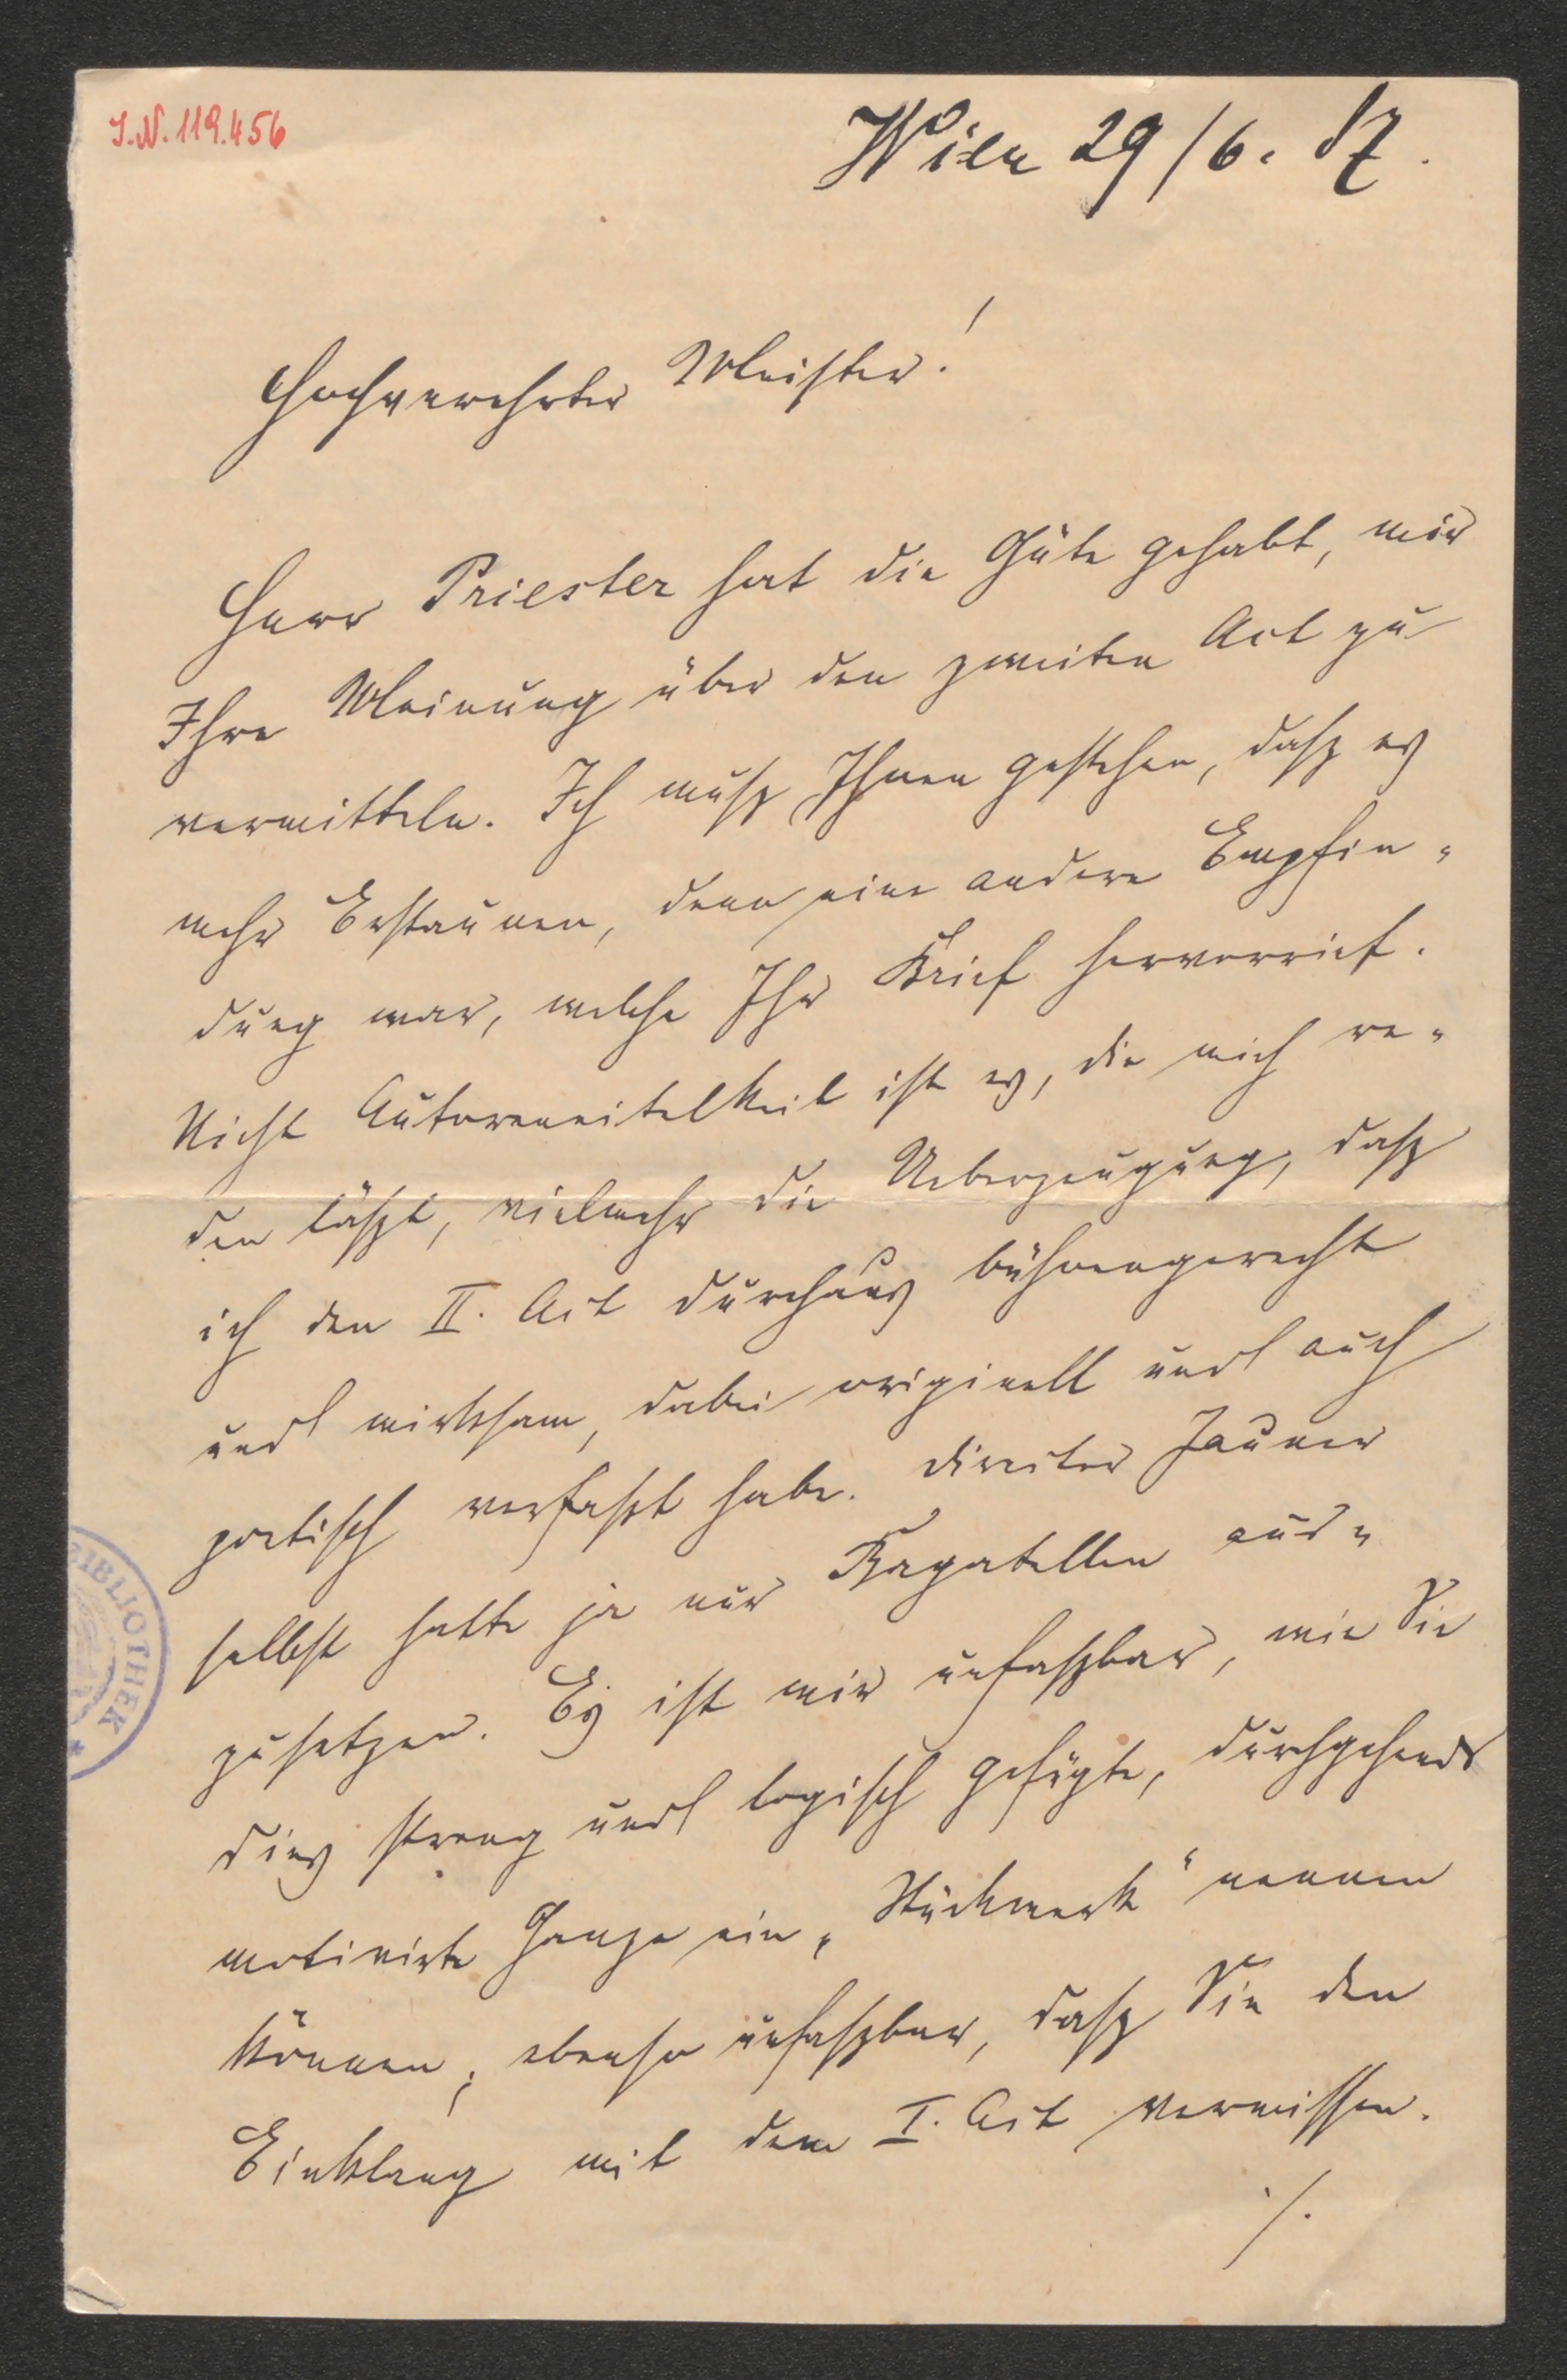 I.N. 119.456
Wien 29/6. 87.
Hochverehrter Meister!
Herr Priester hat die Güte gehabt, mir
Ihre Meinung über den zweiten Act zu
vermitteln. Ich muß Ihnen gestehen, daß es
mehr Erstaunen, denn eine andere Empfin-
dung war, welche Ihr Brief hervorrief.
Nicht Autoreneitelkeit ist es, die mich re-
den läßt, vielmehr die Ueberzeugung, daß
ich den II. Act durchaus bühnengerecht
und wirksam, dabei originell und auch
poetisch verfaßt habe. Director Jauner
selbst hatte ja nur Bagatellen aus-
zusetzen. Es ist mir unfaßbar, wie Sie
dies streng und logisch gefügte, durchgehends
motivirte Ganze ein „Stückwerk“ nennen
können; ebenso unfaßbar, daß Sie den
Einklang mit dem I. Act vermissen.
./.
BIBLIOTHEK *